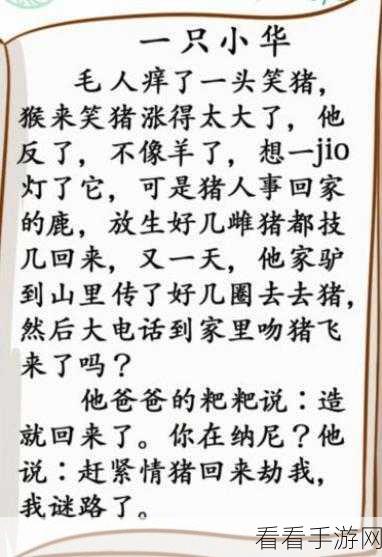 一只小华
毛人痒了一头笑猪，
猴来笑猪涨得太大了，他
反了，不像羊了，想一jio
灯了它，可是猪人事回家
的鹿，放生好几雌猪都技
几回来，又一天，他家驴
到山里传了好几圈去去猪，
然后大电话到家里吻猪飞
来了吗？
他爸爸的粑粑说：造
就回来了。你在纳尼？他
说：赶紧情猪回来劫我，
我谜路了。
看看手游网